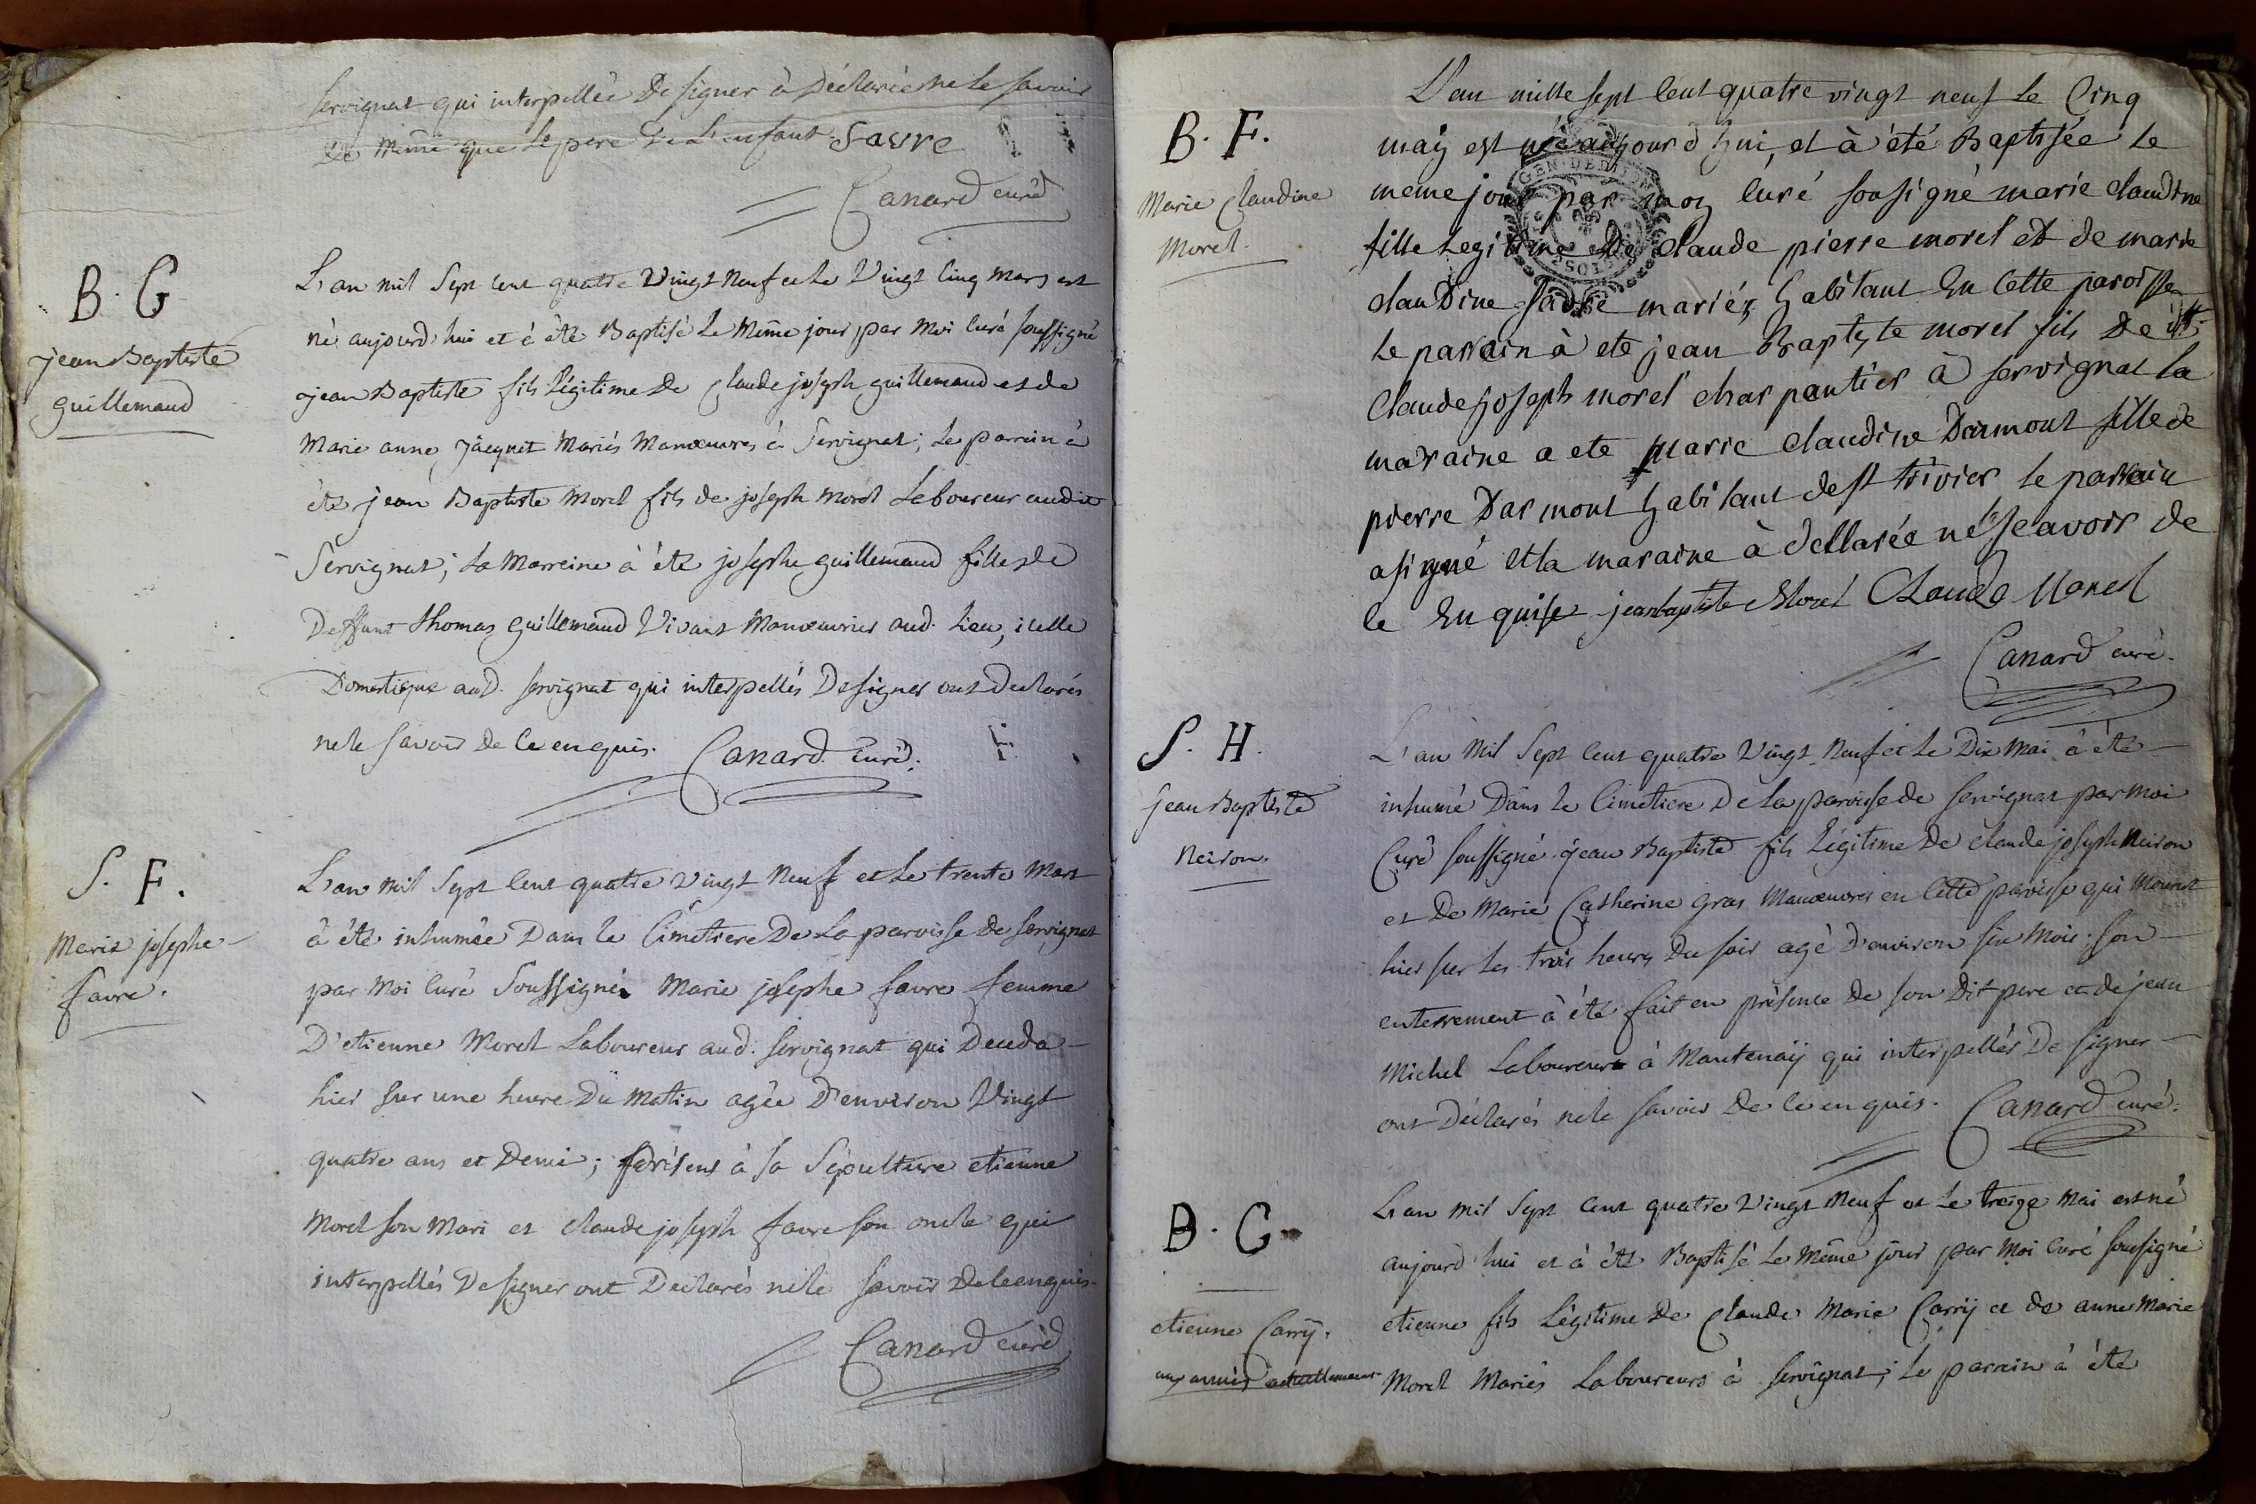 servignat qui interpellée De signer à Déclarée ne le savoir
de même que le pere De L'enfant favre
Canard curé
B. G
jean Baptiste
guillemaud
L'an mil Sept cent quatre Vingt Neuf et le Vingt Cinq Mars est
né aujourd'hui et à été Baptisé Le Même jour par Moi Curé soussigné
jean Baptiste fils Légitime De Claude joseph guillemaud et de
Marie anne Jacquet Mariés Manœuvres à Servignat; Le parrain à
été jean Baptiste Morel fils de joseph Morel Laboureur audit
Servignat; La Marreine à été josephe guillemaud fille de
Deffunt thomas guillemaud Vivant Manœuvrier aud. Lieu, icelle
Domestique aud. servignat qui interpellés De signer ont Declarés
ne le savoir De ce enquis. Canard curé.
S. F.
Marie josephe
favre.
L'an Mil Sept Cent quatre Vingt Neuf et Le trente Mars
à été inhumée Dans le Cimetiere De La paroisse de Servignat
par Moi Curé Soussigné Marie josephe favre femme
D'etienne Morel Laboureur aud. servignat qui Deceda
hier sur une heure Du Matin agée D'environ Vingt
quatre ans et Demi; présens à sa Sépulture etienne
Morel son Mari et claude joseph favre son oncle qui
interpellés De signer ont Declarés ne le savoir De ce enquis.
Canard curé
B. F.
Marie Claudine
Morel.
L'an mille sept Cent quatre vingt neuf Le Cinq
maÿ est née aujourd hui, et à été Baptisée le
meme jour par moy Curé sousigné marie claudine
fille Legitime De Claude pierre morel et de marie
clauDine favre mariéz habitant En Cette paroisse
le parrain à eté jean Baptyste morel fils De
Claude joseph morel charpantier à servignat La
maraine a ete marie claudine Darmont fille de
pierre Darmont habitant de st trivier le parrain
asigné et la maraine à dellarée ne le seavoir de
le En quise jeanbaptiste Morel Claude Morel
Canard curé.
S. H.
Jean Baptiste
Neiron.
L'an Mil Sept Cent quatre Vingt Neuf et Le Dix Mai à été
inhumé Dans le Cimetiere De La paroisse de servignat par Moi
Curé soussigné jean Baptiste fils Légitime De claude joseph Neiron
et De Marie Catherine gras Manœuvres en Cette paroisse qui Mourut
hier sur les trois heures Du soir agé D'environ six Mois; son
enterrement à été fait en présence De son Dit pere et de jean
Michel Laboureur à Mantenaÿ qui interpellés De signer
ont Déclarés ne le savoir De ce enquis. Canard curé.
B. C
etienne Carrÿ.
L'an Mil Sept Cent quatre Vingt Neuf et Le treize Mai est né
aujourd'hui et à été Baptisé Le Même jour par Moi Curé sousigné
etienne fils Légitime De Claude Marie Carrÿ et de anne Marie
Morel Mariés Laboureurs à servignat; Le parrein à été